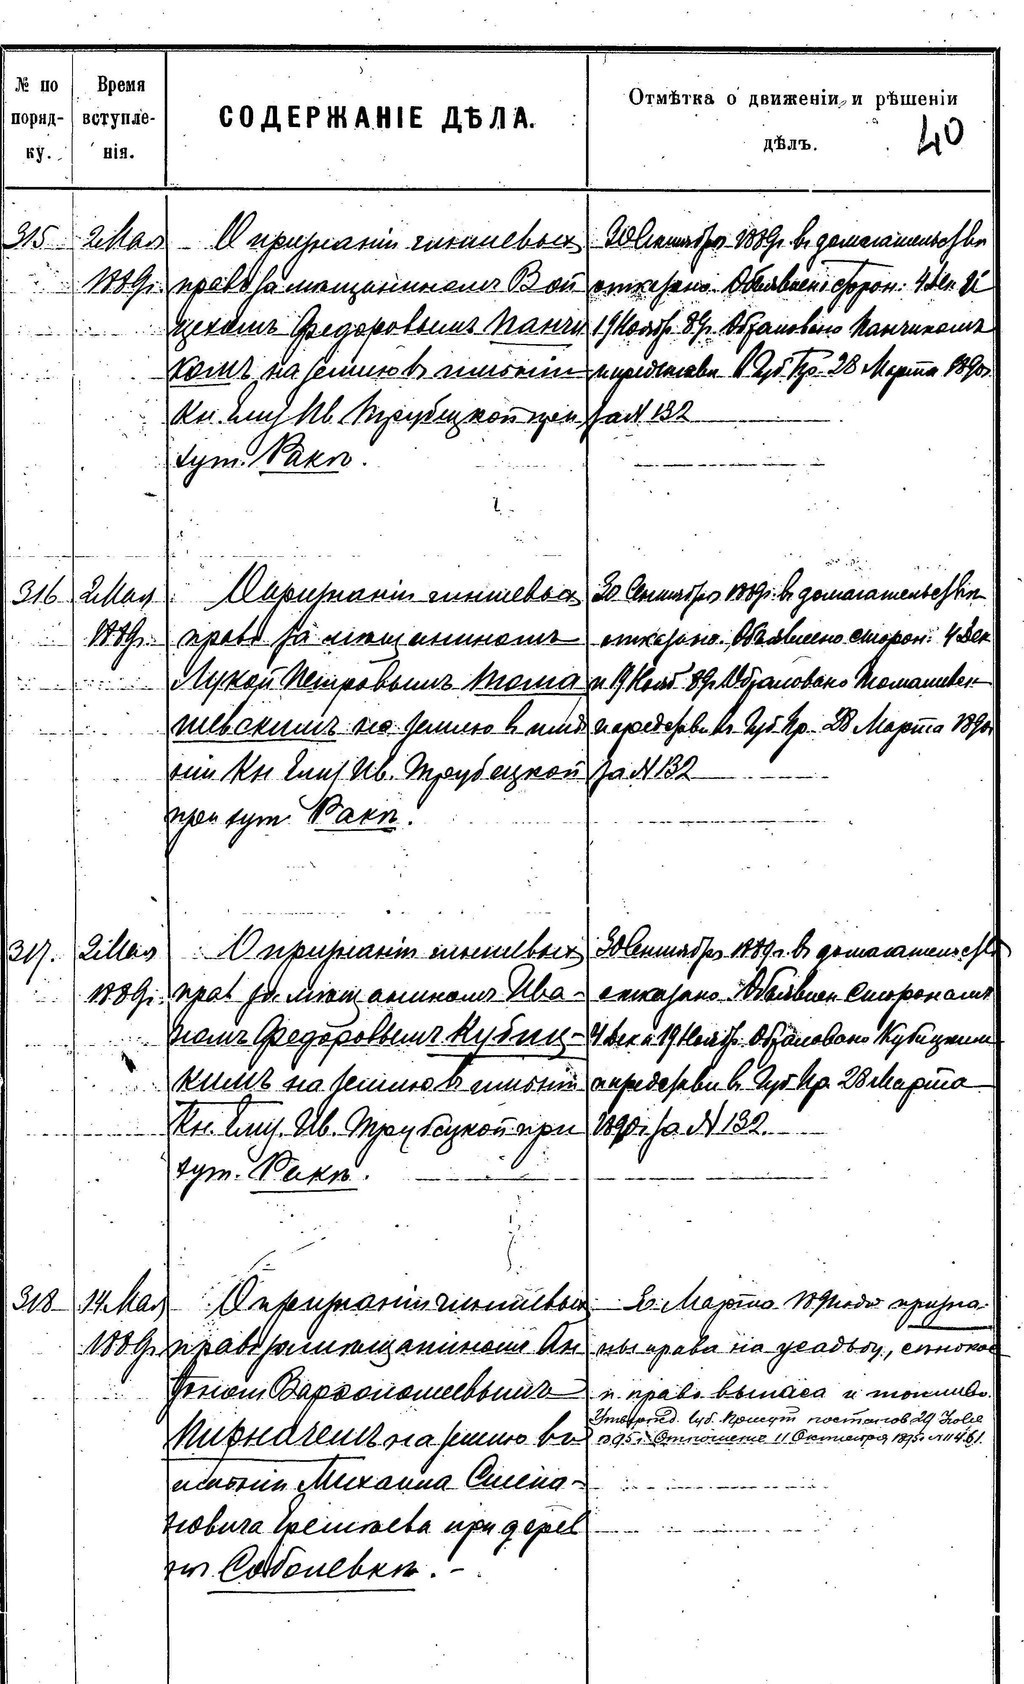 № по поряд- ку.
Время вступле- нія.
СОДЕРЖАНІЕ ДѢЛА.
Отмѣтка о движеніи и рѣшеніи дѣлъ.
40
315
2 Мая
1889г.
О признаніи чиншевыхъ
правъ за мѣщаниномъ Вой
цехомъ Федоровымъ Панчи
комъ на землю въ имѣніи
Кн. Елиз. Ив. Трубецкой при
хут. Ракъ.
30 Сентября 1889г. въ домагательствѣ
отказано. Объявлено сторон. 4 Дек. и
19 Ноябр. 89г. Обжаловано Панчикомъ
и представл. въ Губ. Пр. 28 Марта 1890г.
за N 132
316
2 Мая
1889г.
О признаніи чиншевыхъ
правъ за мѣщаниномъ
Лукой Петровымъ Тома
шевскимъ на землю въ имѣ
ніи Кн. Елиз. Ив. Трубецкой
при хут. Ракъ.
30 Сентября 1889г. въ домагательствѣ
отказано. Объявлено сторон. 4 Дек.
и 19 Нояб. 89г. Обжаловано Томашевск.
и представл. въ Губ. Пр. 28 Марта 1890г.
за N 132
317.
2 Мая
1889г.
О признаніи чиншевыхъ
правъ за мѣщаниномъ Ива-
номъ Федоровымъ Кубиц-
кимъ на землю въ имѣніи
Кн. Елиз. Ив. Трубецкой при
хут. Ракъ.
30 Сентября 1889г. въ домагательствѣ
отказано. Объявлен. сторонамъ
4 Дек. и 19 Ноябр. Обжаловано Кубицкимъ
и представл. въ Губ. Пр. 28 Марта
1890г. за N 132.
318
14 Мая
1889г.
О признаніи чиншевыхъ
правъ за мѣщаниномъ Ан
тономъ Варфоломеевымъ
на землю въ
имѣніи Михаила Степа-
новича Еремѣева при дерев
нѣ Соболевкѣ.
Марта призна
ны права на усадьбу, сѣнокос
и право выпаса и топливо.
Утвержд. Губ. Присут. постанов. 29 Іюля
1895г. Отношеніе 11 Октября 1895г. N 11461.